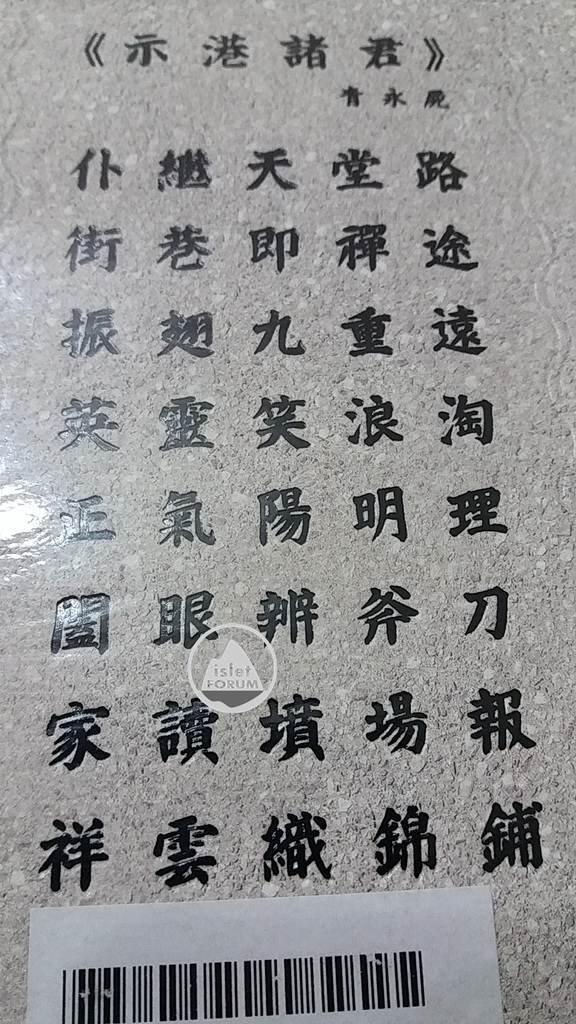 《示港諸君》
青永屍
仆繼天堂路
街巷即禪途
振翅九重遠
英靈笑浪淘
正氣陽明理
闔眼辨斧刀
家讀墳場報
祥雲織錦鋪
islet
FORUM